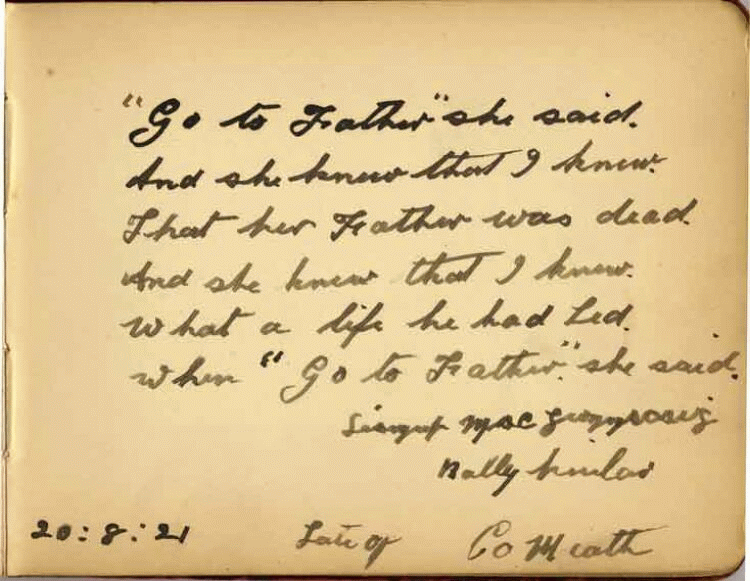 "Go to Father" she said.
And she knew that I knew.
That her Father was dead.
And she knew that I knew.
What a life he had Led.
When "Go to Father." she said.
Mac
Ballykinlar
20:8:21 Late of Co Meath